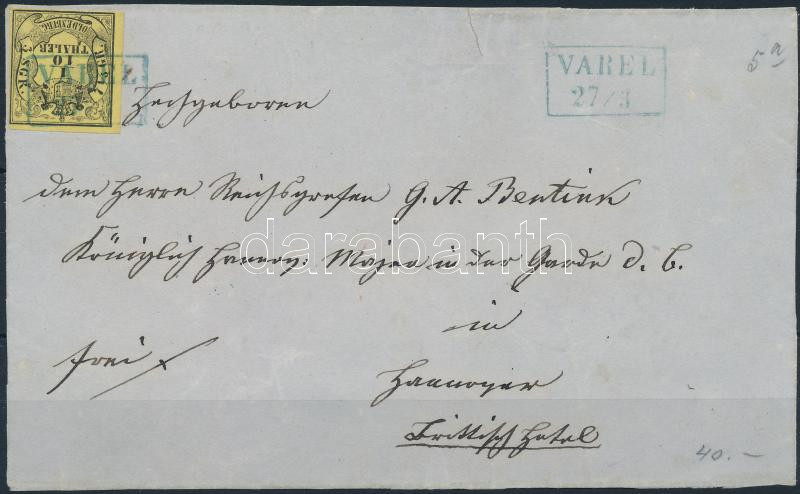 OLDENBURG
1/10
THALER
3 SGR.
VAREL
VAREL
27/3
5a
Hochgeboren
dem Herrn Reichsgrafen G. A. Bentink
Königlich Hannov: Major in der Garde d. C.
in
frei
Hannover
Brittisch Hotel
40.—
darabanth